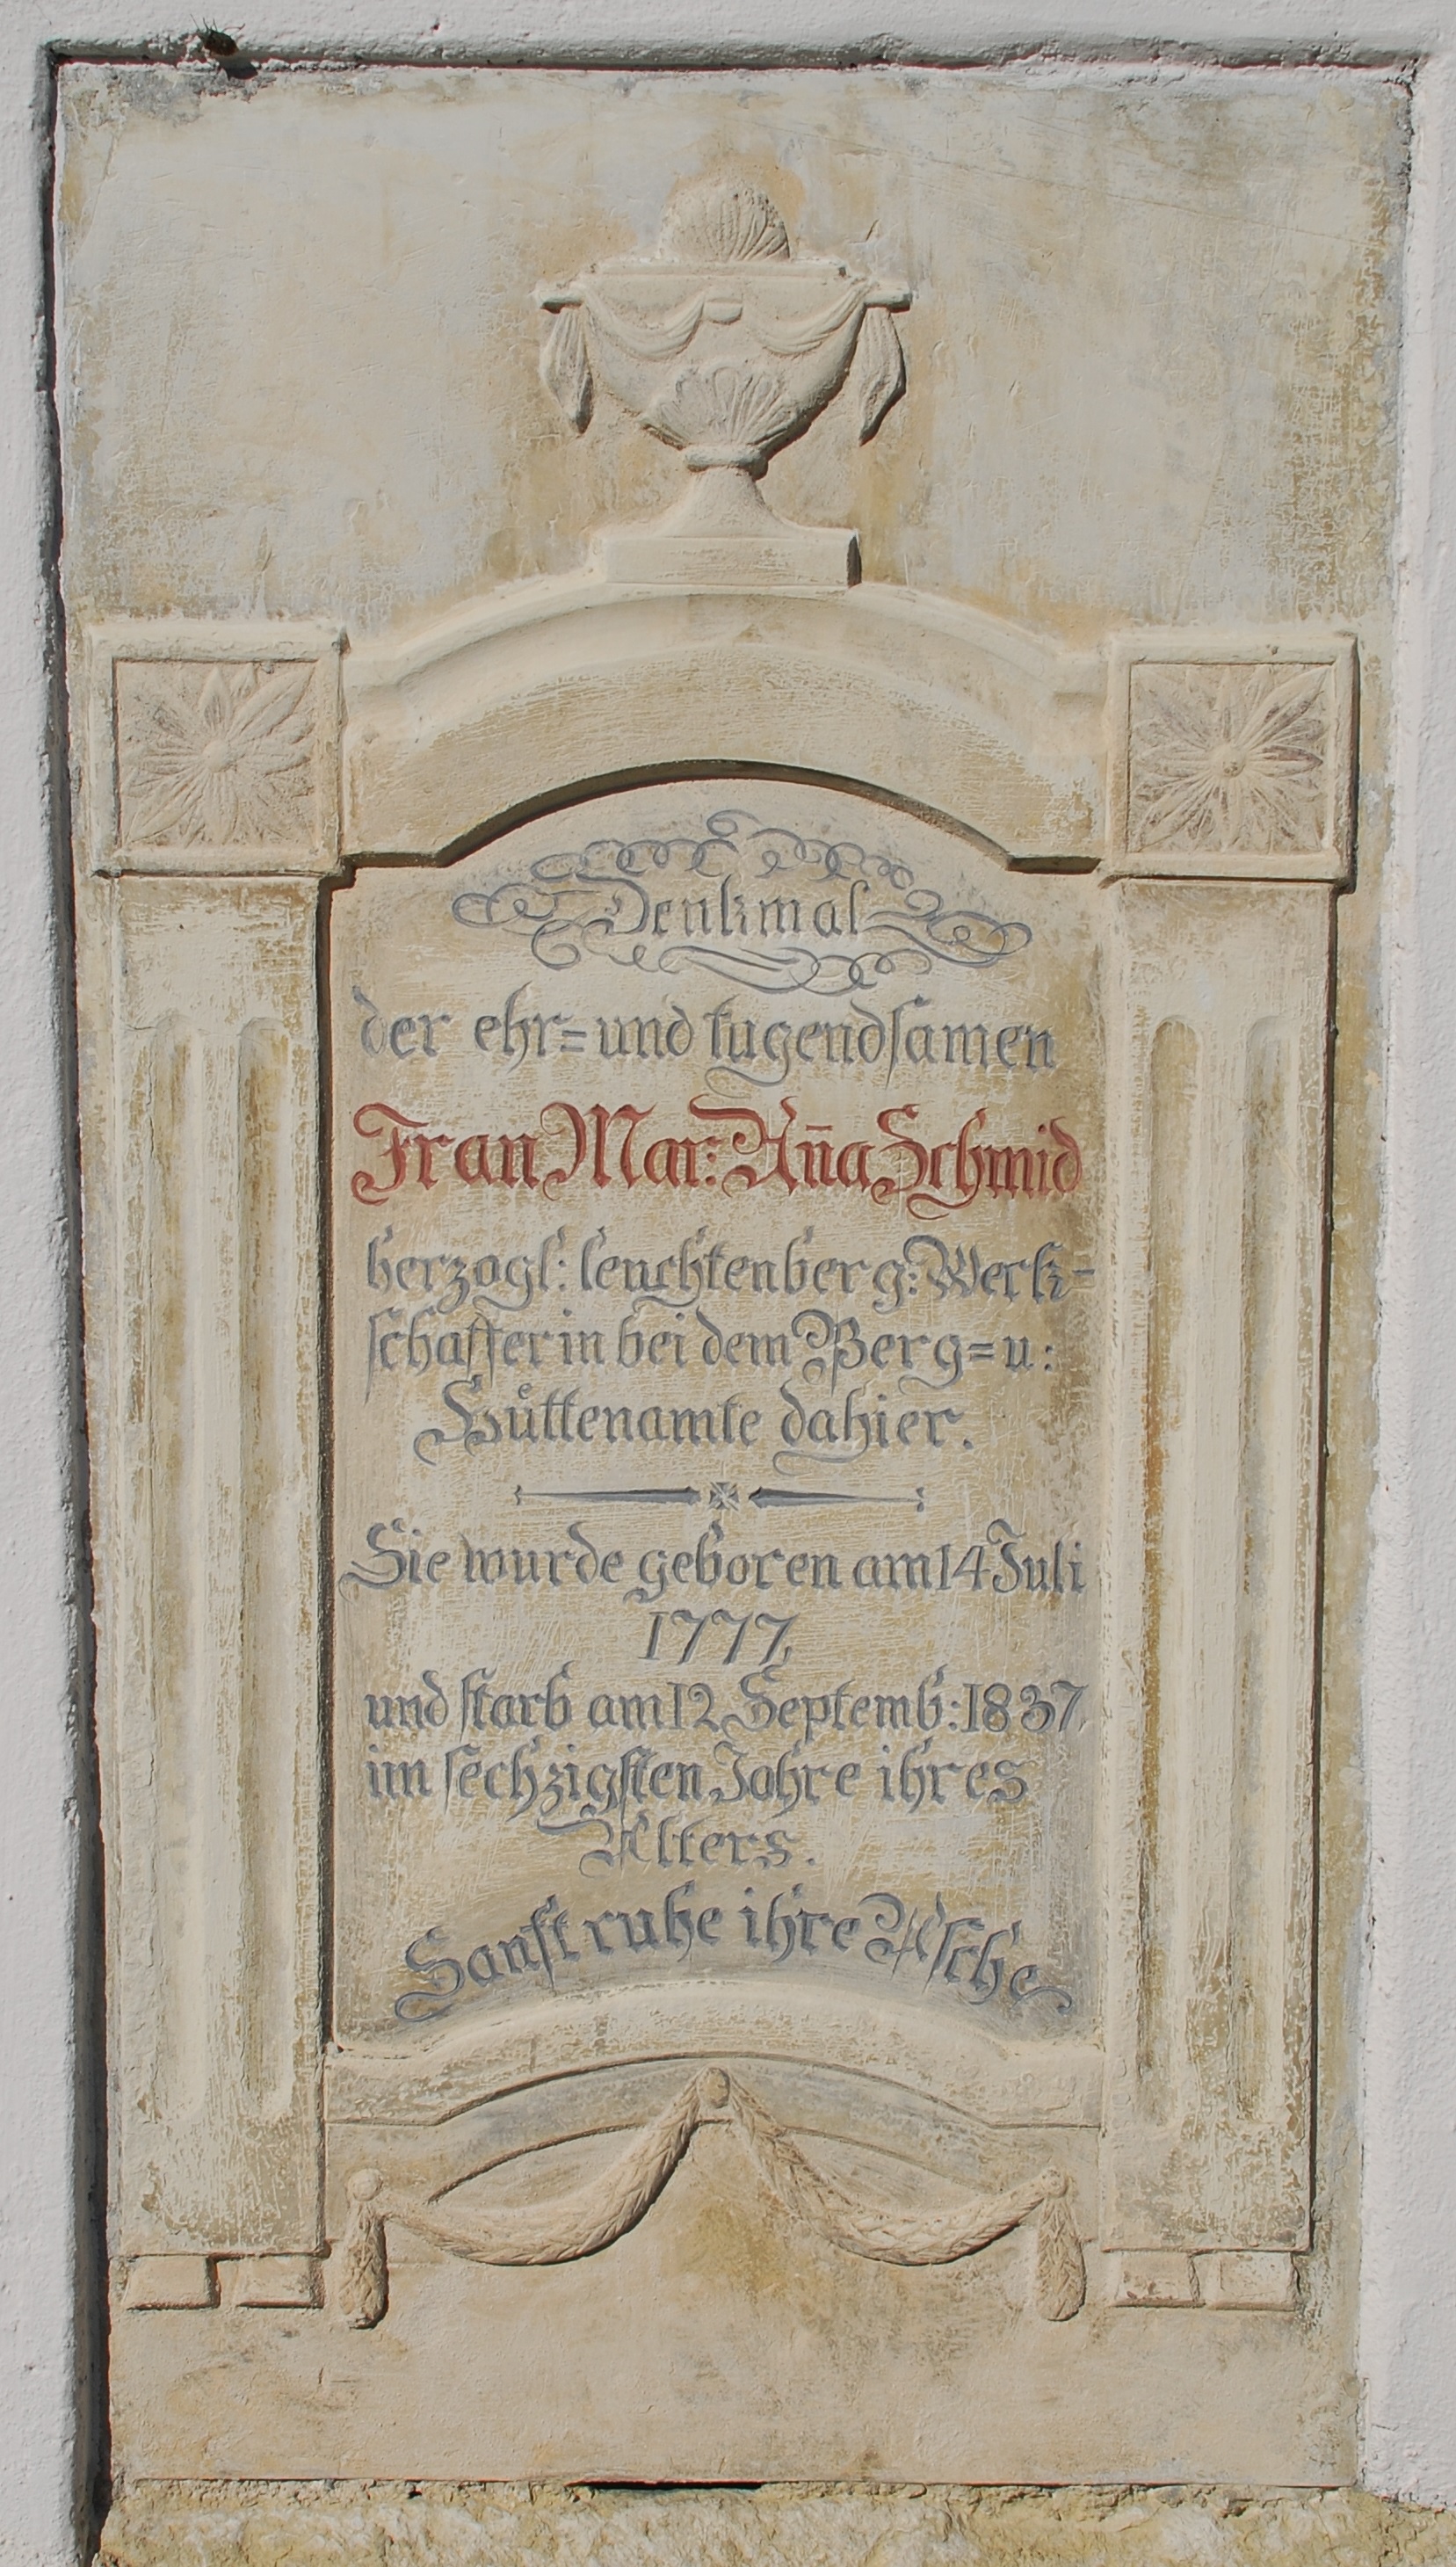 Denkmal
der ehr=und tugendsamen
Frau Mar: An̅a Schmid
herzogl: leuchtenberg: Werk-
schafferin bei dem Berg=u:
Hüttenamte dahier.
Sie wurde geboren am 14 Juli
1777,
und starb am 12 Septemb: 1837,
im sechzigsten Jahre ihres
Alters.
Sanft ruhe ihre Asche